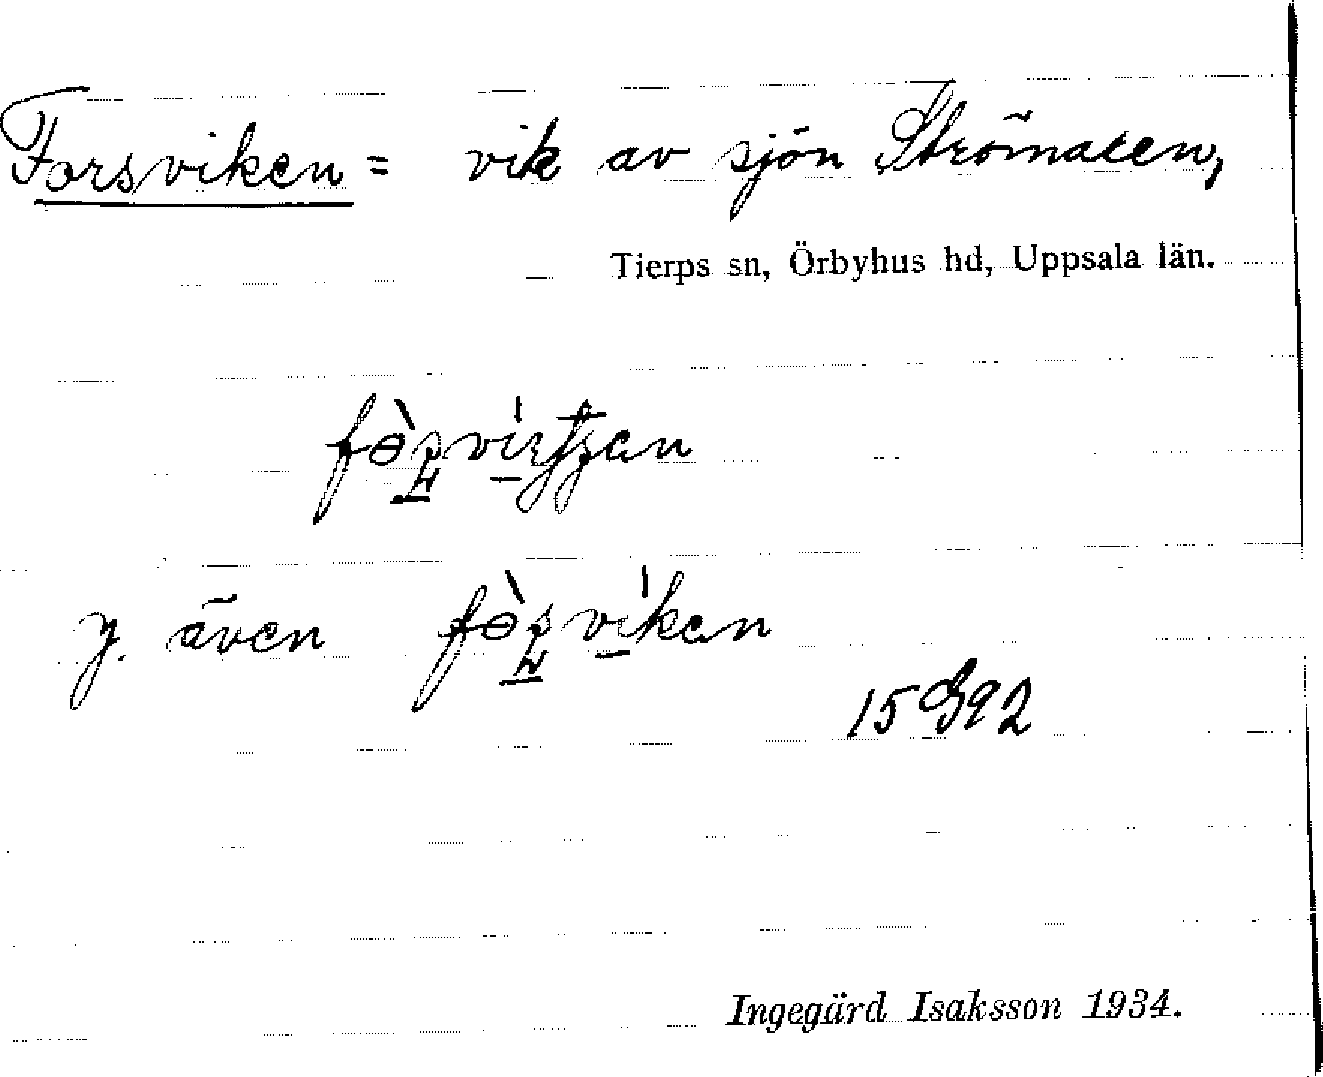 Forsviken = vik av sjön Strömaren,
Tierps sn, Örbyhus hd, Uppsala län.
y. även
15G92
Ingegärd Isaksson 1934.